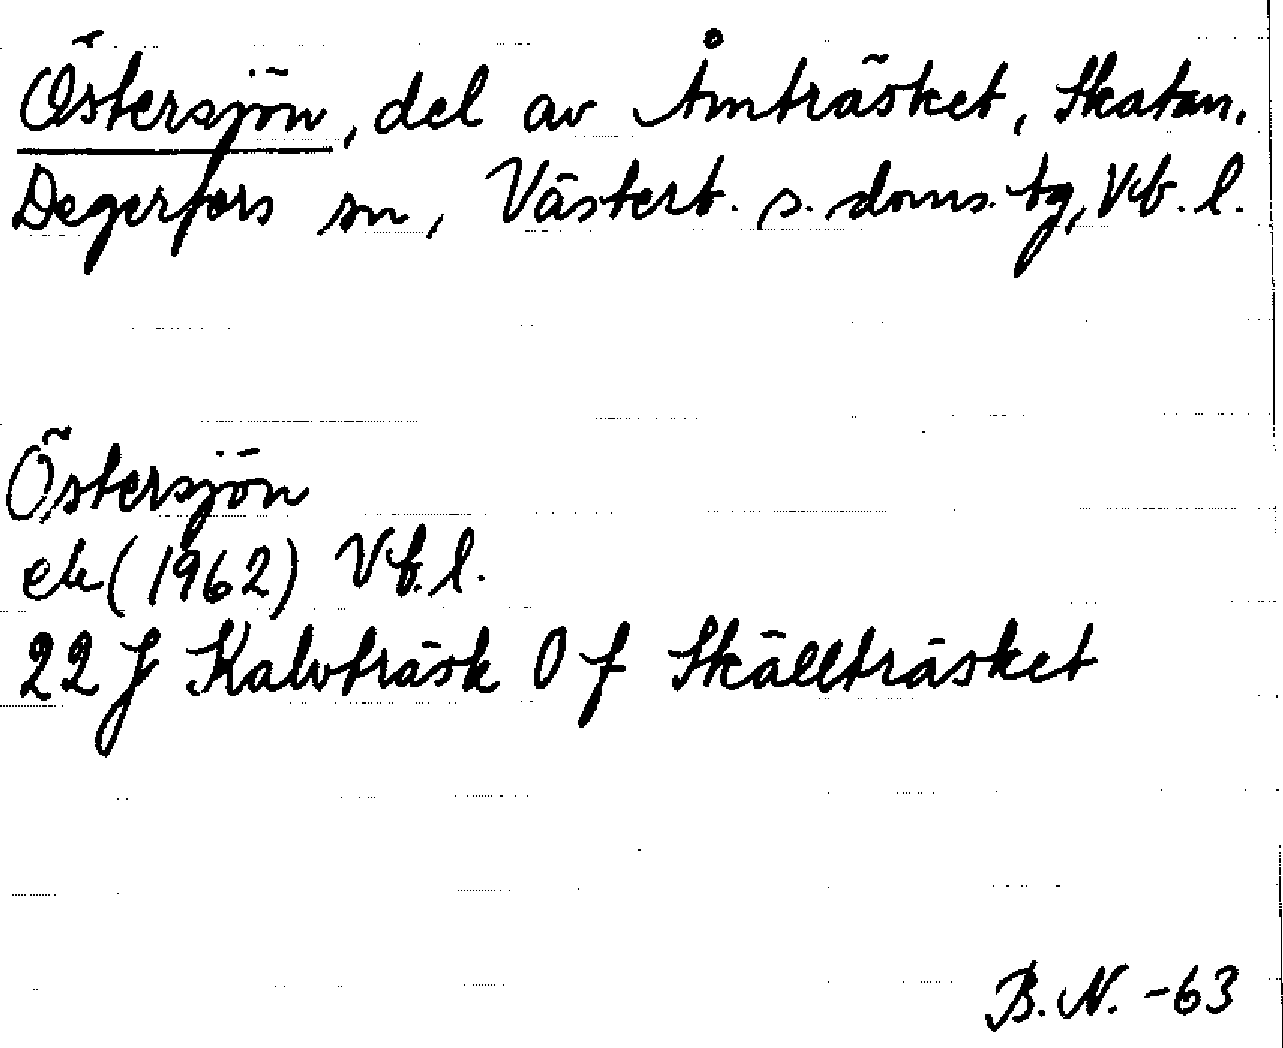 Östersjön, del av Åmträsket, Skatan.
Degerfors sn, Västerb. s. doms. tg, Vb. l.
Östersjön
ek (1962) Vb. l.
22 J Kalvträsk 0 f Skällträsket
B. N. -63